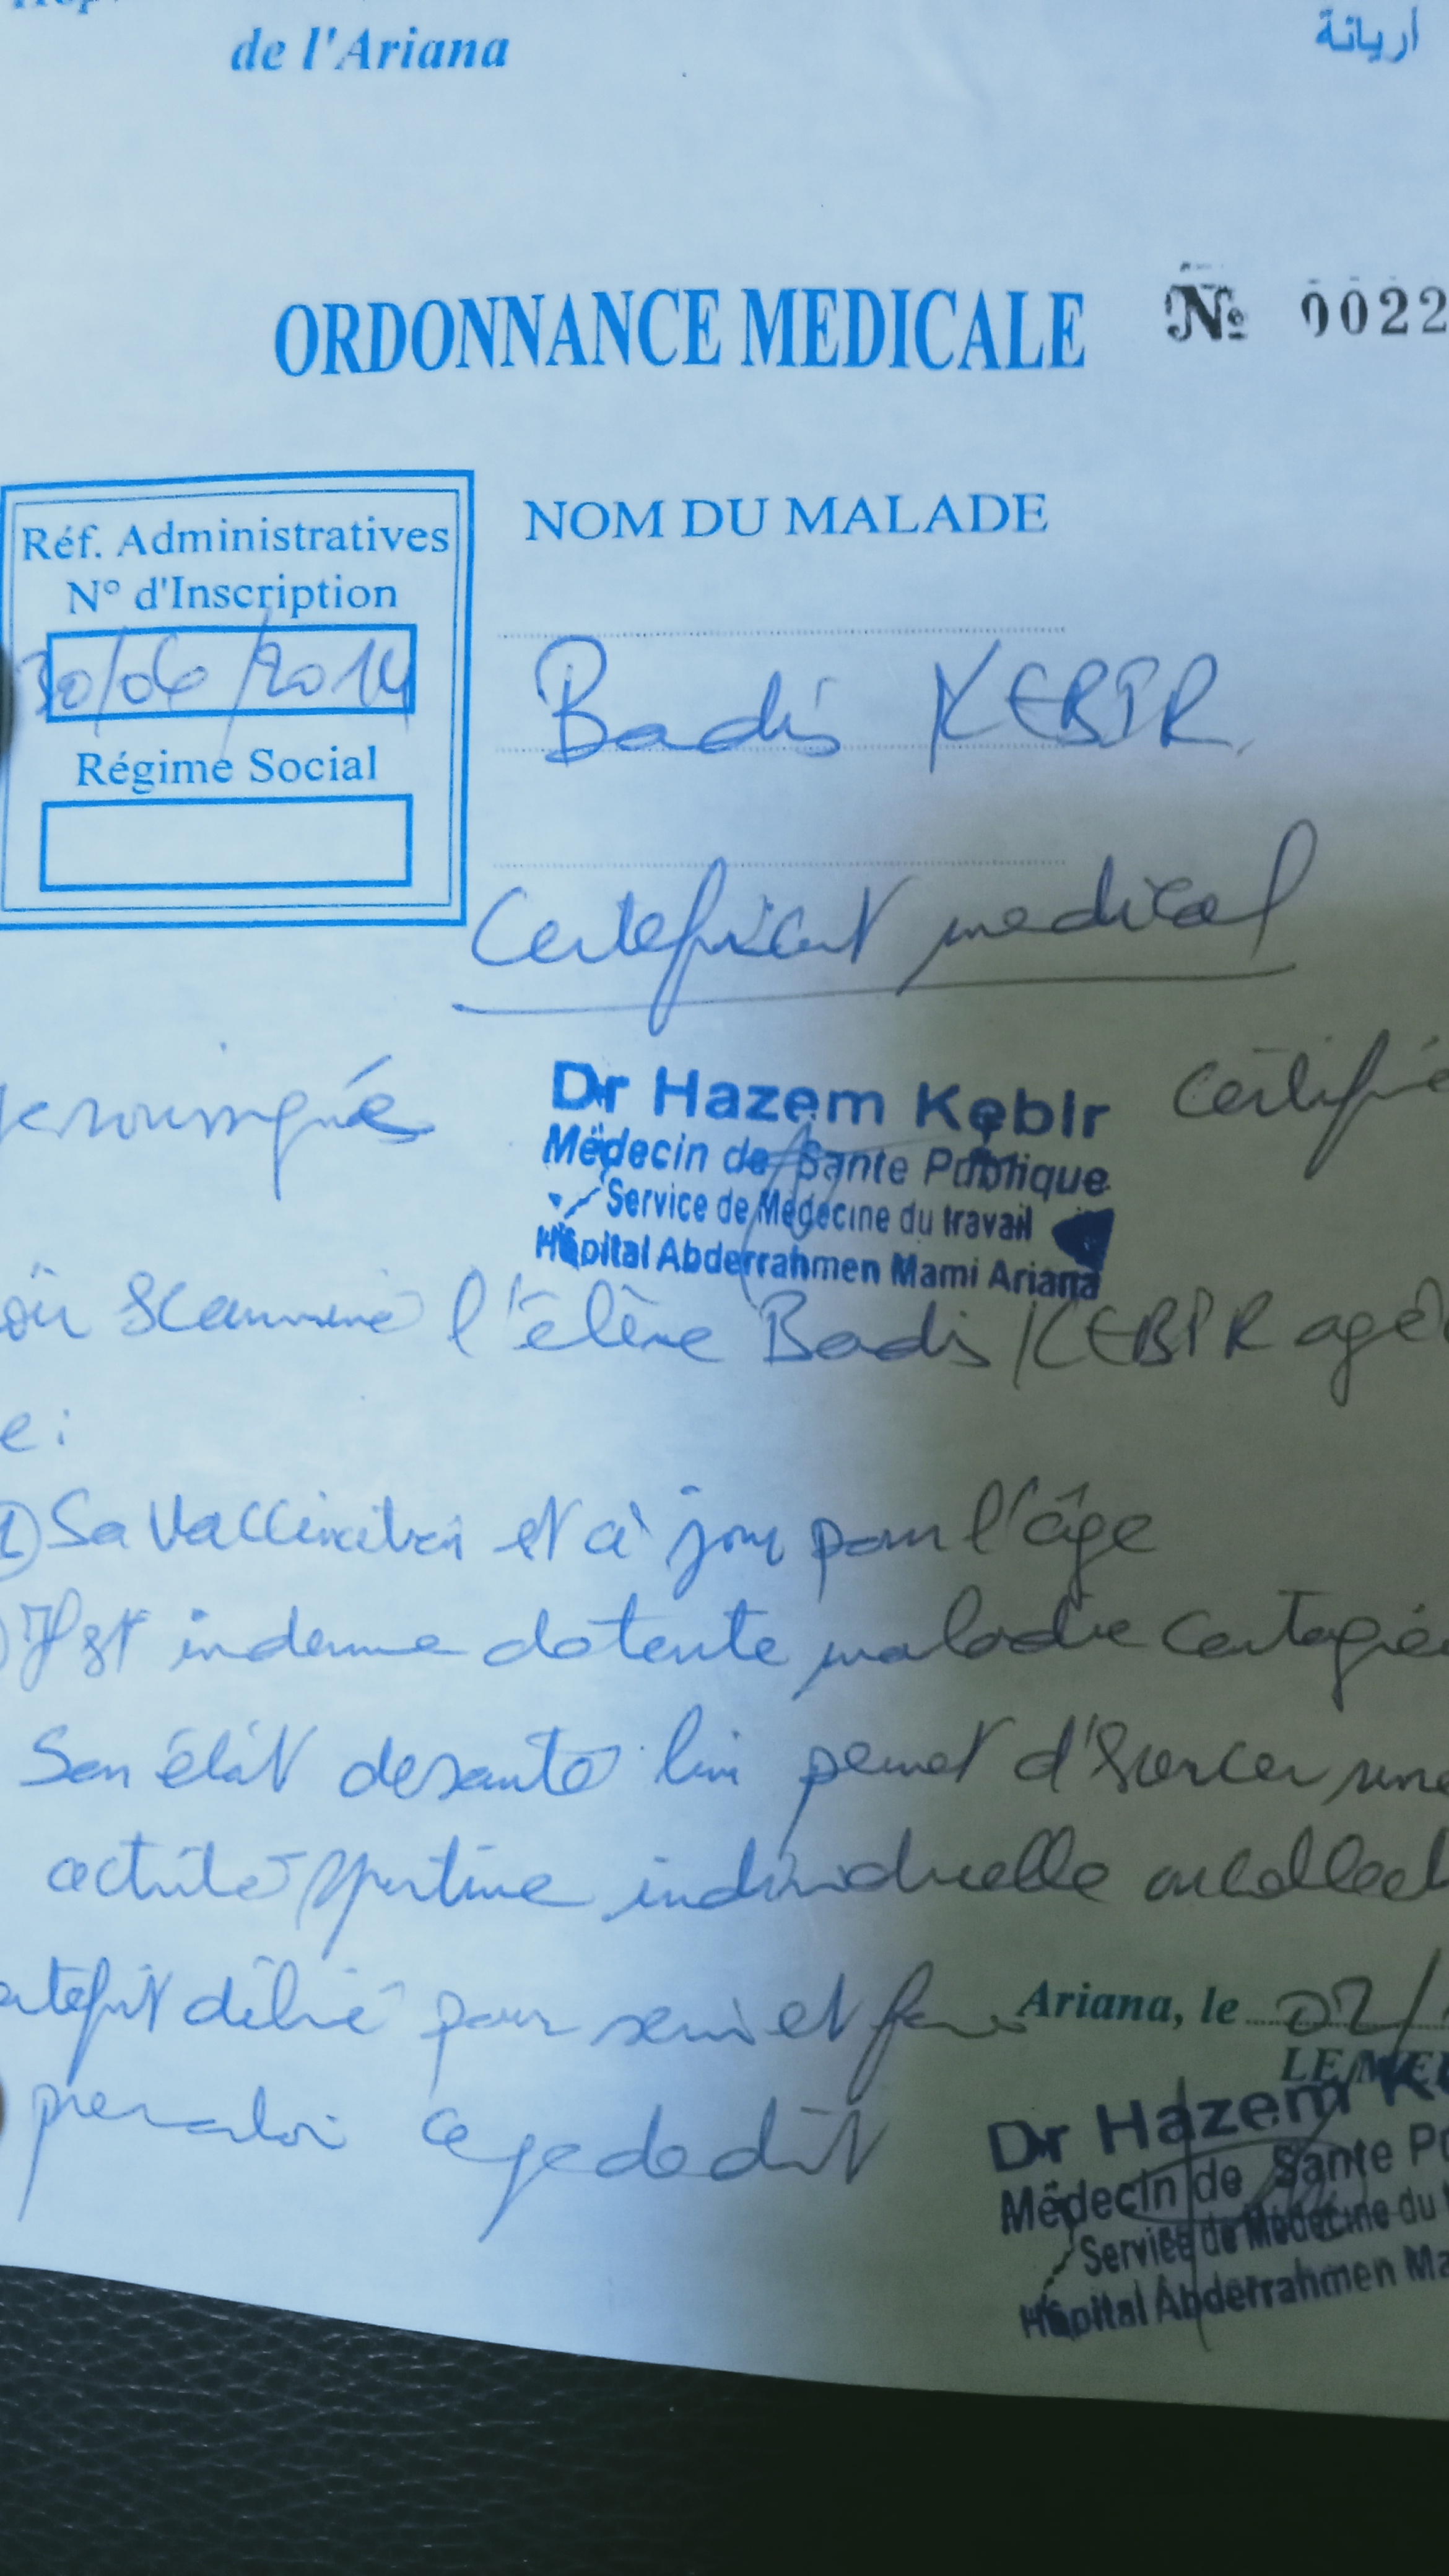 de l'Ariana
أريانة
ORDONNANCE MEDICALE № 0022
Réf. Administratives
N° d'Inscription
30/06/2014
Régime Social
NOM DU MALADE
Badis KEBIR
Certeficat medical
Dr Hazem Kebir
Médecin de Sante Publique
Service de Médecine du travail
Hôpital Abderrahmen Mami Ariana
Certifie
l'élève Badis KEBIR agé
e:
1) Sa Vaccination est à jour pour l'âge
Il est indemne de toute maladie contagieu
Son état de santé lui permet d'exercer une
activité sportive individuelle ou collect
délivré pour servir et faire
prevaloir ce que de droit
Ariana, le 02/
LE MED
Dr Hazem Ke
Médecin de Sante Pu
Service de Médecine du
Hôpital Abderrahmen Ma